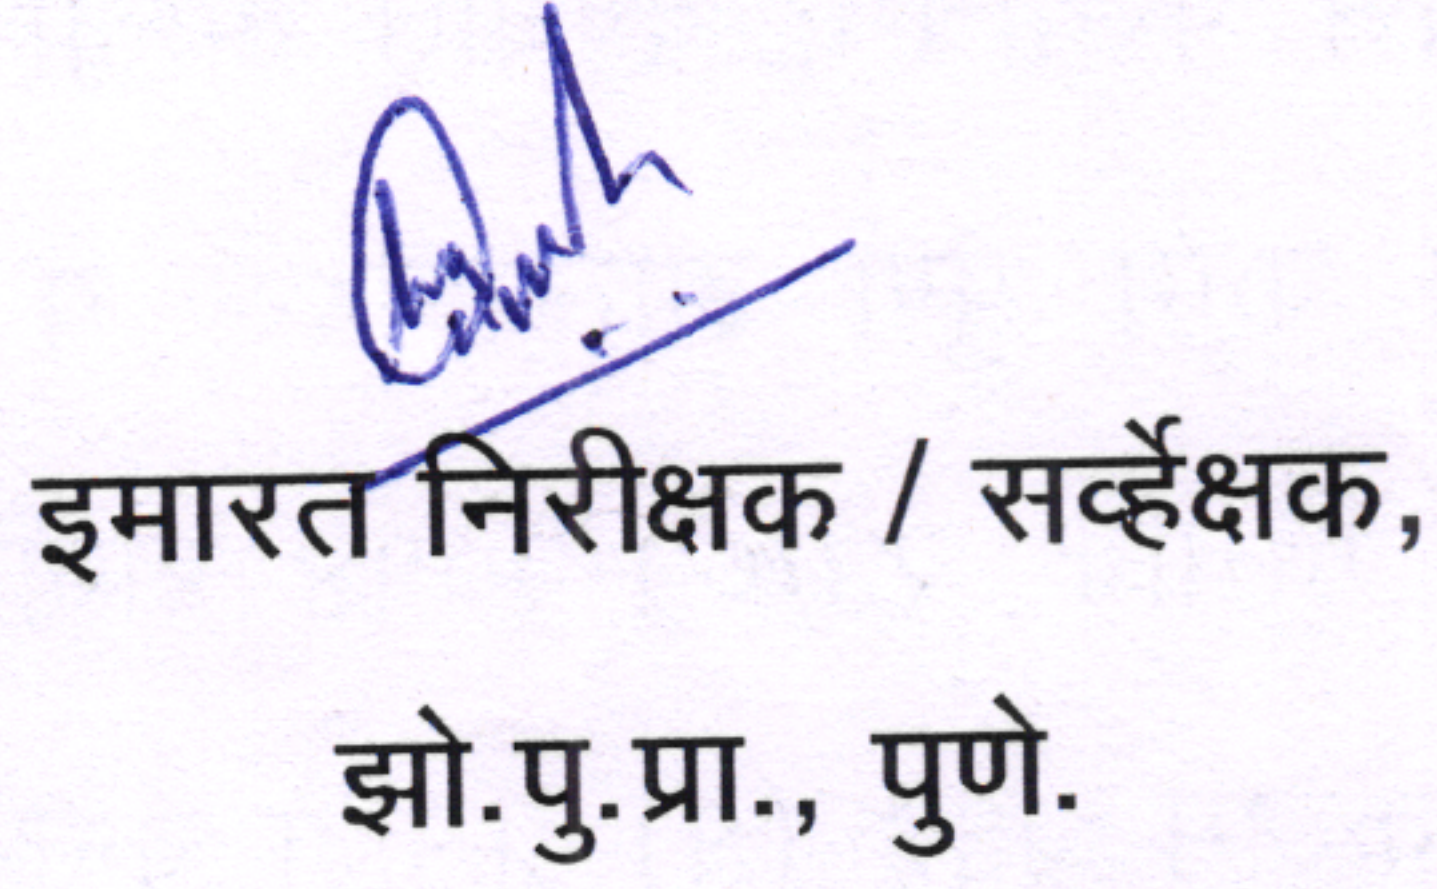 इमारत निरीक्षक / सर्व्हेक्षक,
झो.पु.प्रा., पुणे.